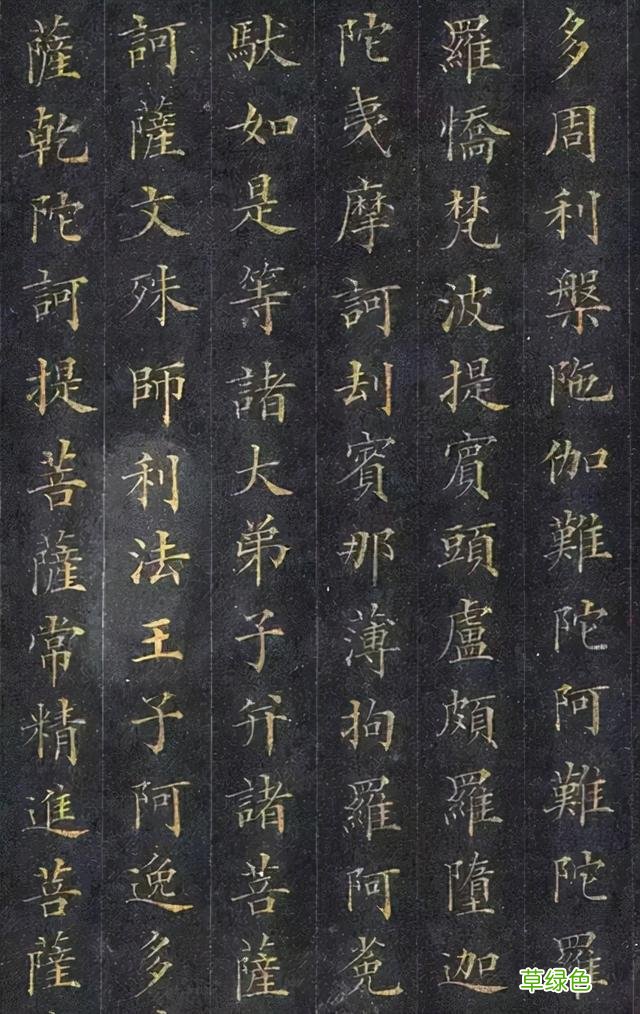 多周利槃陁伽難陀阿難陀羅
羅憍梵波提賓頭盧頗羅墮迦
陀夷摩訶刦賓那薄拘羅阿㝹
馱如是等諸大弟子并諸菩薩
訶薩文殊師利法王子阿逸多
薩乾陀訶提菩薩常精進菩薩
草绿色